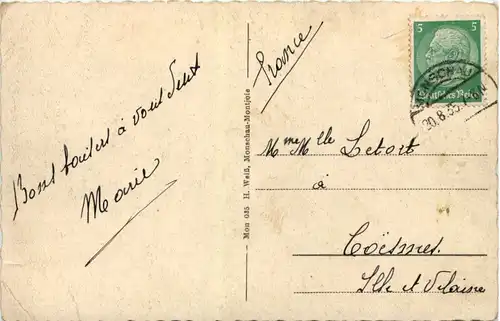 Bons baisers à vous deux
Marie
Mon 035 H. Weiß, Monschau-Montjoie
France
5 5
Deutsches Reich
MONSCHAU
20.8.35
Mme Mlle Letort
à
Coësmes
Ille et Vilaine